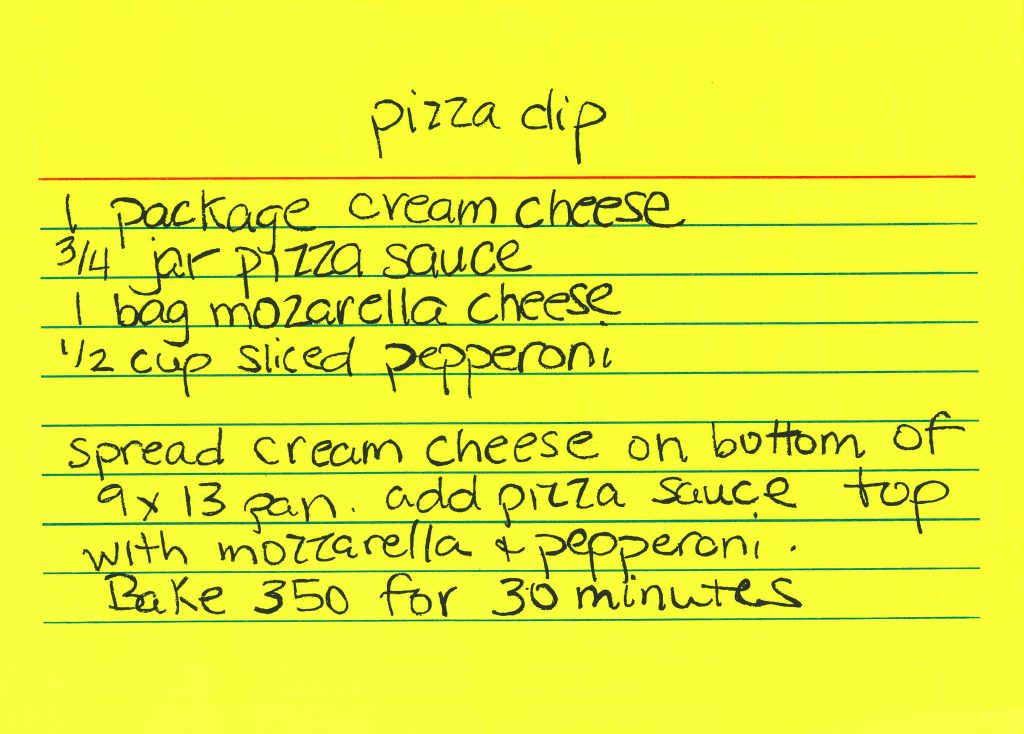 pizza dip
1 package cream cheese
3/4 jar pizza sauce
1 bag mozarella cheese
1/2 cup sliced pepperoni
spread cream cheese on bottom of
9x13 pan. add pizza sauce top
with mozzarella & pepperoni.
Bake 350 for 30 minutes